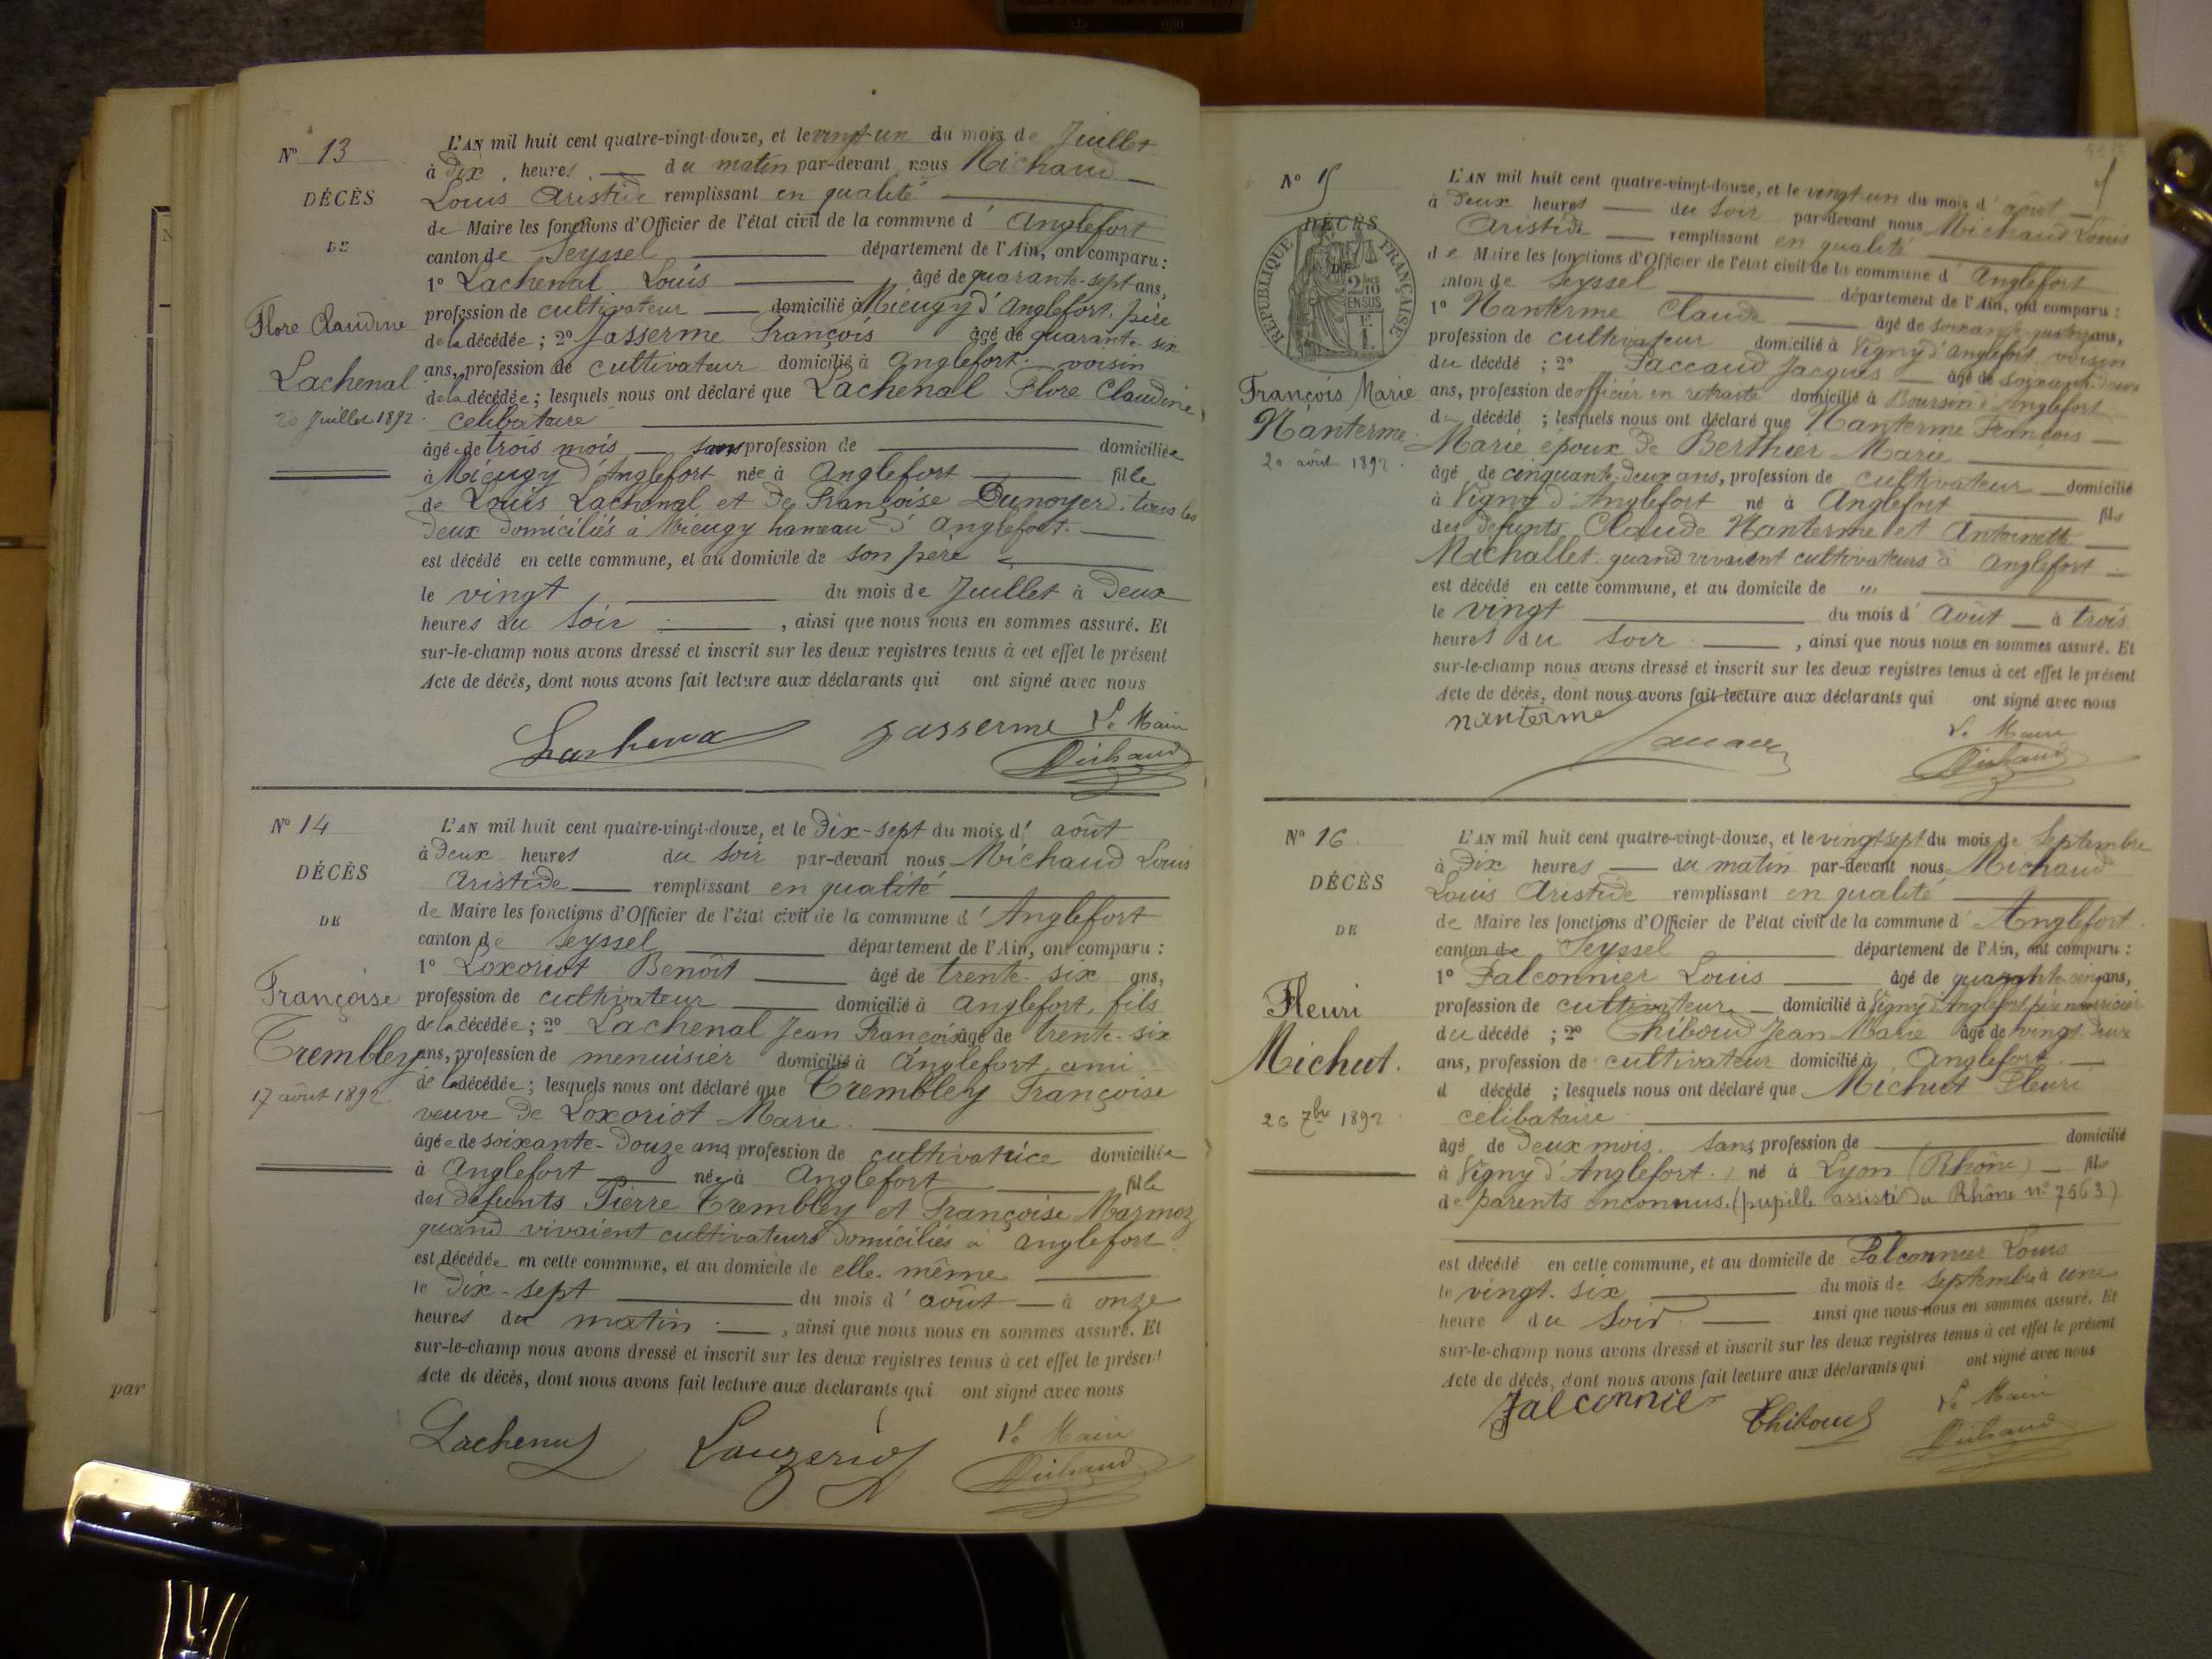 N° 13
DÉCÈS
DE
Flore Claudine
Lachenal
20 Juillet 1892
L'AN mil huit cent quatre-vingt-douze, et le vingt-un du mois de Juillet
à Dix heures du matin par-devant nous Michaud
Louis Aristide remplissant en qualité
de Maire les fonctions d'Officier de l'état civil de la commune d'Anglefort
canton de Seyssel département de l'Ain, ont comparu :
1° Lachenal Louis âgé de quarante-sept ans,
profession de cultivateur domicilié à Mieugy d'Anglefort, père
de la décédée ; 2° Jasserme François âgé de quarante-six
ans, profession de cultivateur domicilié à Anglefort voisin
de la décédée ; lesquels nous ont déclaré que Lachenal Flore Claudine
celibataire
âgée de trois mois sans profession de domiciliée
à Mieugy d'Anglefort née à Anglefort fille
de Louis Lachenal et de Françoise Dunoyer, tous les
deux domiciliés à Mieugy hameau d'Anglefort.
est décédé en cette commune, et au domicile de son père
le vingt du mois de Juillet à Deux
heures du soir, ainsi que nous nous en sommes assuré. Et
sur-le-champ nous avons dressé et inscrit sur les deux registres tenus à cet effet le présent
Acte de décès, dont nous avons fait lecture aux déclarants qui ont signé avec nous
Jasserme Le Maire
Michaud
N° 14
DÉCÈS
DE
Françoise
Trembley
17 août 1892.
L'AN mil huit cent quatre-vingt-douze, et le Dix-sept du mois d'août
à Deux heures du soir par-devant nous Michaud Louis
Aristide remplissant en qualité
de Maire les fonctions d'Officier de l'état civil de la commune d'Anglefort
canton de Seyssel département de l'Ain, ont comparu :
1° Loxoriot Benoit âgé de trente-six ans,
profession de cultivateur domicilié à Anglefort, fils
de la décédée ; 2° Lachenal Jean François âgé de trente-six
ans, profession de menuisier domicilié à Anglefort ami
de la décédée ; lesquels nous ont déclaré que Trembley Françoise
veuve de Loxoriot Marie.
âgée de soixante-douze ans profession de cultivatrice domiciliée
à Anglefort née à Anglefort fille
des defunts Pierre Trembley et Françoise Marmoz
quand vivaient cultivateurs domiciliés à Anglefort
est décédée en cette commune, et au domicile de elle-même
le Dix-sept du mois d'août à onze
heures du matin, ainsi que nous nous en sommes assuré. Et
sur-le-champ nous avons dressé et inscrit sur les deux registres tenus à cet effet le présent
Acte de décès, dont nous avons fait lecture aux déclarants qui ont signé avec nous
Le Maire
Michaud
par
N° 15
DÉCÈS
DE
RÉPUBLIQUE FRANÇAISE
2/10
EN SUS
François Marie
Nanterme
20 août 1892.
L'AN mil huit cent quatre-vingt-douze, et le vingt-un du mois d'août
à Deux heures du soir par-devant nous Michaud Louis
Aristide remplissant en qualité
de Maire les fonctions d'Officier de l'état civil de la commune d'Anglefort
canton de Seyssel département de l'Ain, ont comparu :
1° Nanterme Claude âgé de ans,
profession de cultivateur domicilié à Vigny d'Anglefort voisin
du décédé ; 2° Paccaud Jacques âgé de soixante-deux
ans, profession de officier en retraite domicilié à d'Anglefort
du décédé ; lesquels nous ont déclaré que Nanterme François
Marie époux de Berthier Marie
âgé de cinquante-deux ans, profession de cultivateur domicilié
à Vigny d'Anglefort né à Anglefort fils
des defunts Claude Nanterme et Antoinette
Michallet quand vivaient cultivateurs à Anglefort
est décédé en cette commune, et au domicile de "
le vingt du mois d'Août à trois
heures du soir, ainsi que nous nous en sommes assuré. Et
sur-le-champ nous avons dressé et inscrit sur les deux registres tenus à cet effet le présent
Acte de décès, dont nous avons fait lecture aux déclarants qui ont signé avec nous
nanterme
Le Maire
Michaud
N° 16
DÉCÈS
DE
Fleuri
Michut.
26 7bre 1892
L'AN mil huit cent quatre-vingt-douze, et le vingt-sept du mois de Septembre
à Dix heures du matin par-devant nous Michaud
Louis Aristide remplissant en qualité
de Maire les fonctions d'Officier de l'état civil de la commune d'Anglefort
canton de Seyssel département de l'Ain, ont comparu :
1° Falconnier Louis âgé de quarante-cinq ans,
profession de cultivateur domicilié à Vigny d'Anglefort père nourricier
du décédé ; 2° Thiboud Jean Marie âgé de vingt-deux
ans, profession de cultivateur domicilié à Anglefort
d décédé ; lesquels nous ont déclaré que Michut Fleuri
celibataire
âgé de Deux mois. sans profession de domicilié
à Vigny d'Anglefort, né à Lyon (Rhône) fils
de parents inconnus. (pupille assisté du Rhône n° 7563)
est décédé en cette commune, et au domicile de Falconnier Louis
le vingt-six du mois de septembre à une
heure du soir ainsi que nous nous en sommes assuré. Et
sur-le-champ nous avons dressé et inscrit sur les deux registres tenus à cet effet le présent
Acte de décès, dont nous avons fait lecture aux déclarants qui ont signé avec nous
Falconnier Thiboud Le Maire
Michaud